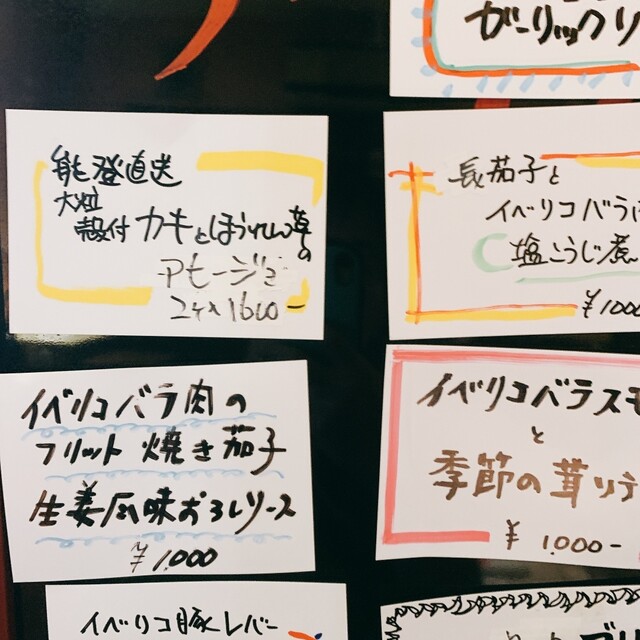 ガーリックリ
能登直送
大粒
殻付 カキとほうれん草の
アヒージョ
2ヶ 1600-
長茄子と
イベリコバラ
塩こうじ煮
¥1000
イベリコバラ肉の
フリット 焼き茄子
生姜風味おろしソース
¥1,000
イベリコバラス
と
季節の茸ソテ
¥1,000-
イベリコ豚レバー